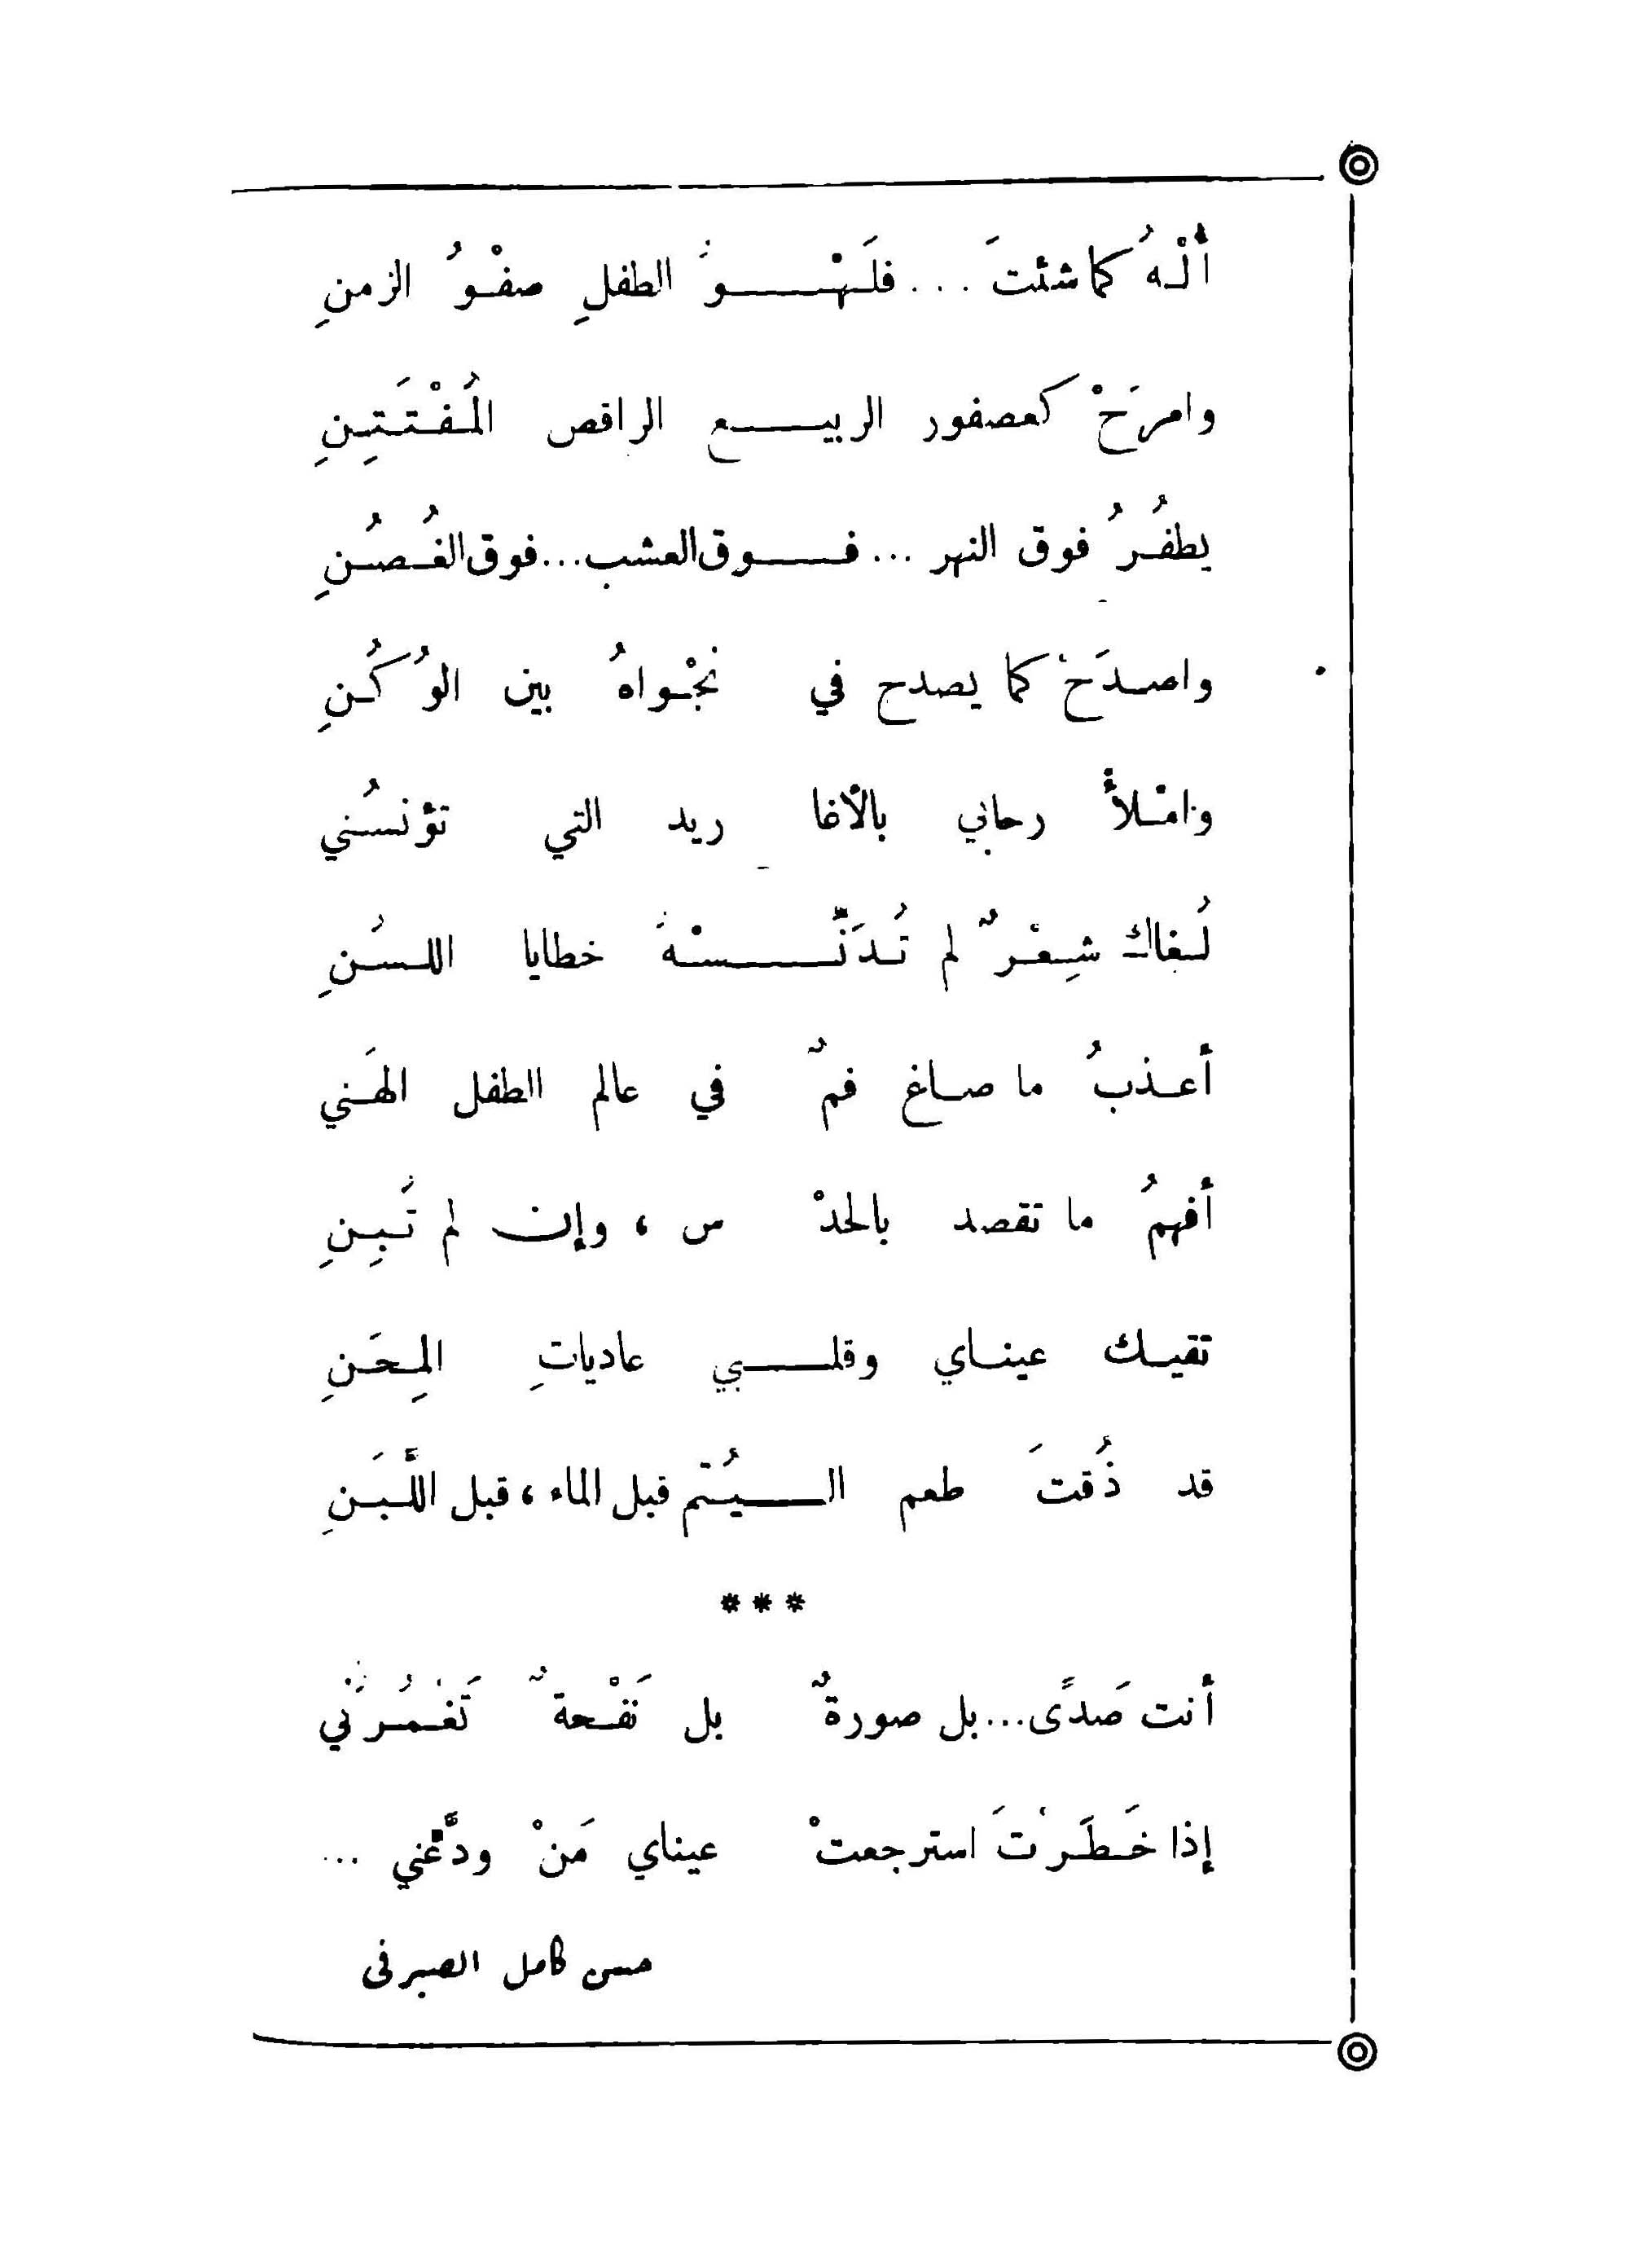 أُلْـهُ كما شئتَ ... فلَـهْـــوُ الطفلِ صفْـوُ الزمنِ
وامرَحْ كعصفور الربيـــع الراقص المُـفْـتَـتِـنِ
يطفُـرُ فوق النهر ... فـــوق العشب...فوق الغُـصُـنِ
واصـدَحْ كما يصدح في نجْـواهُ بين الوُكُـنِ
وامْـلأْ رحابي بالأغا ريد التي تؤنسُـني
لُـغاك شِـعْـرٌ لم تُـدَنِّـــسْـهُ خطايا اللـسُـنِ
أعـذبُ ما صـاغ فمٌ في عالم الطفل الهَـني
أفهمُ ما تقصد بالحدْ س ، وإن لم تَـبِـنِ
تقيـك عينـاي وقلـــبي عادياتِ المِـحَـنِ
قد ذُقتَ طعم الـــيُـتْم قبل الماء ، قبل اللَّـبَـنِ
***
أنت صَدىً...بل صورةٌ بل نَفْـحةٌ تَغْـمُـرُني
إذا خَـطَـرْتَ استرجعتْ عيناي مَنْ ودَّعني ...
حسن كامل الصيرفى